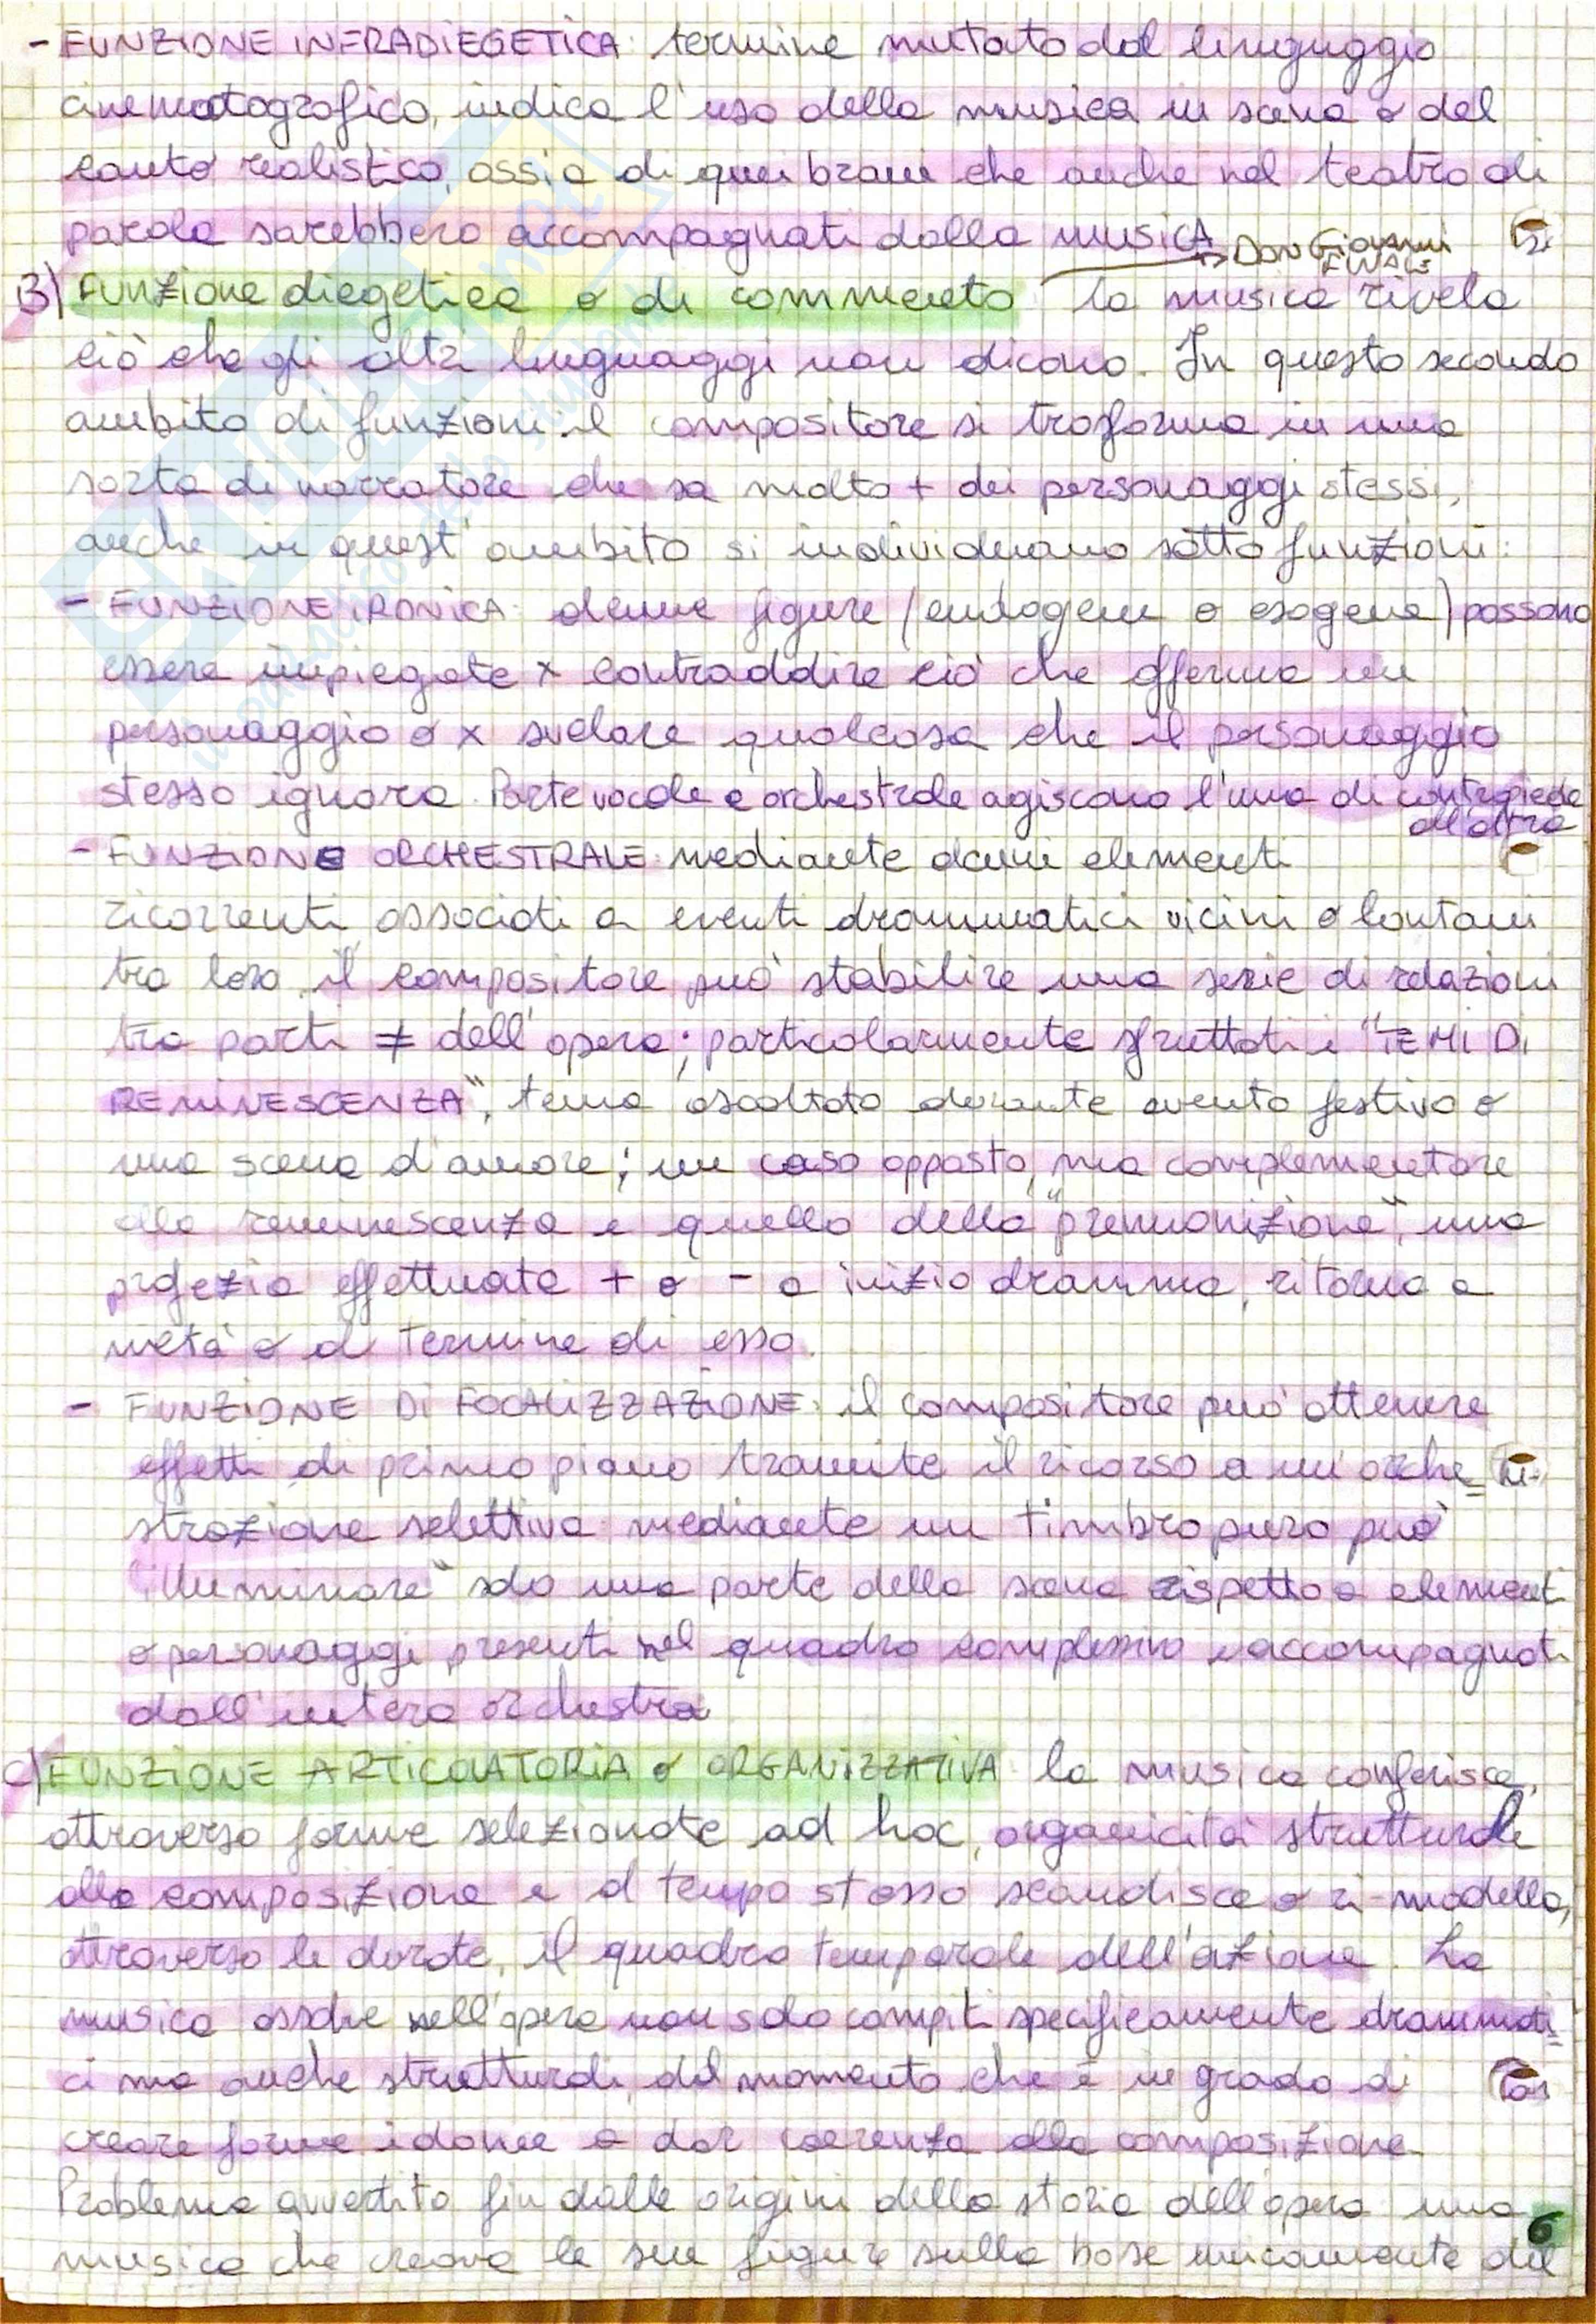 - FUNZIONE INFRADIEGETICA: termine mutato dal linguaggio
cinematografico, indica l'uso della musica in scena o del
canto realistico, ossia di quei brani che anche nel teatro di
parola sarebbero accompagnati dalla musicA
→ DON GiovANNi
FINALE
B) FUNZione diegetica o di commento la musica rivela
ciò che gli altri linguaggi non dicono. In questo secondo
ambito di funzioni il compositore si trasforma in una
sorta di narratore che sa molto + dei personaggi stessi,
anche in quest'ambito si individuano sotto funzioni:
- FUNZIONE IRONICA: alcune figure (endogene o esogene) possono
essere impiegate x contraddire ciò che afferma un
personaggio o x svelare qualcosa che il personaggio
stesso ignora. Parte vocale e orchestrale agiscono l'una di contropiede
all'altra
- FUNZIONE ORCHESTRALE: mediante alcuni elementi
ricorrenti associati a eventi drammatici vicini o lontani
tra loro, il compositore può stabilire una serie di relazioni
tra parti ≠ dell'opera; particolarmente sfruttati i "TEMI DI
REMINESCENZA", tema ascoltato durante evento festivo o
una scena d'amore; un caso opposto, ma complementare
alla reminescenza è quello della "premonizione", una
profezia effettuata + o - a inizio dramma, ritorna a
metà o al termine di esso.
- FUNZIONE DI FOCALIZZAZIONE: il compositore può ottenere
effetti di primo piano tramite il ricorso a un'orche=
strazione selettiva: mediante un timbro puro può
"illuminare" solo una parte della scena rispetto a elementi
o personaggi presenti nel quadro complessivo e accompagnati
dall'intera orchestra
C) FUNZIONE ARTICOLATORIA o ORGANIZZATIVA: la musica conferisce,
attraverso forme selezionate ad hoc, organicità strutturale
alla composizione e al tempo stesso scandisce o ri-modella,
attraverso le durate, il quadro temporale dell'azione. La
musica assolve nell'opera non solo compiti specificamente drammati=
ci ma anche strutturali, dal momento che è in grado di
creare forme idonee a dar coerenza alla composizione.
Problema avvertito fin dalle origini della storia dell'opera: una
musica che creava le sue figure sulla base unicamente del
6